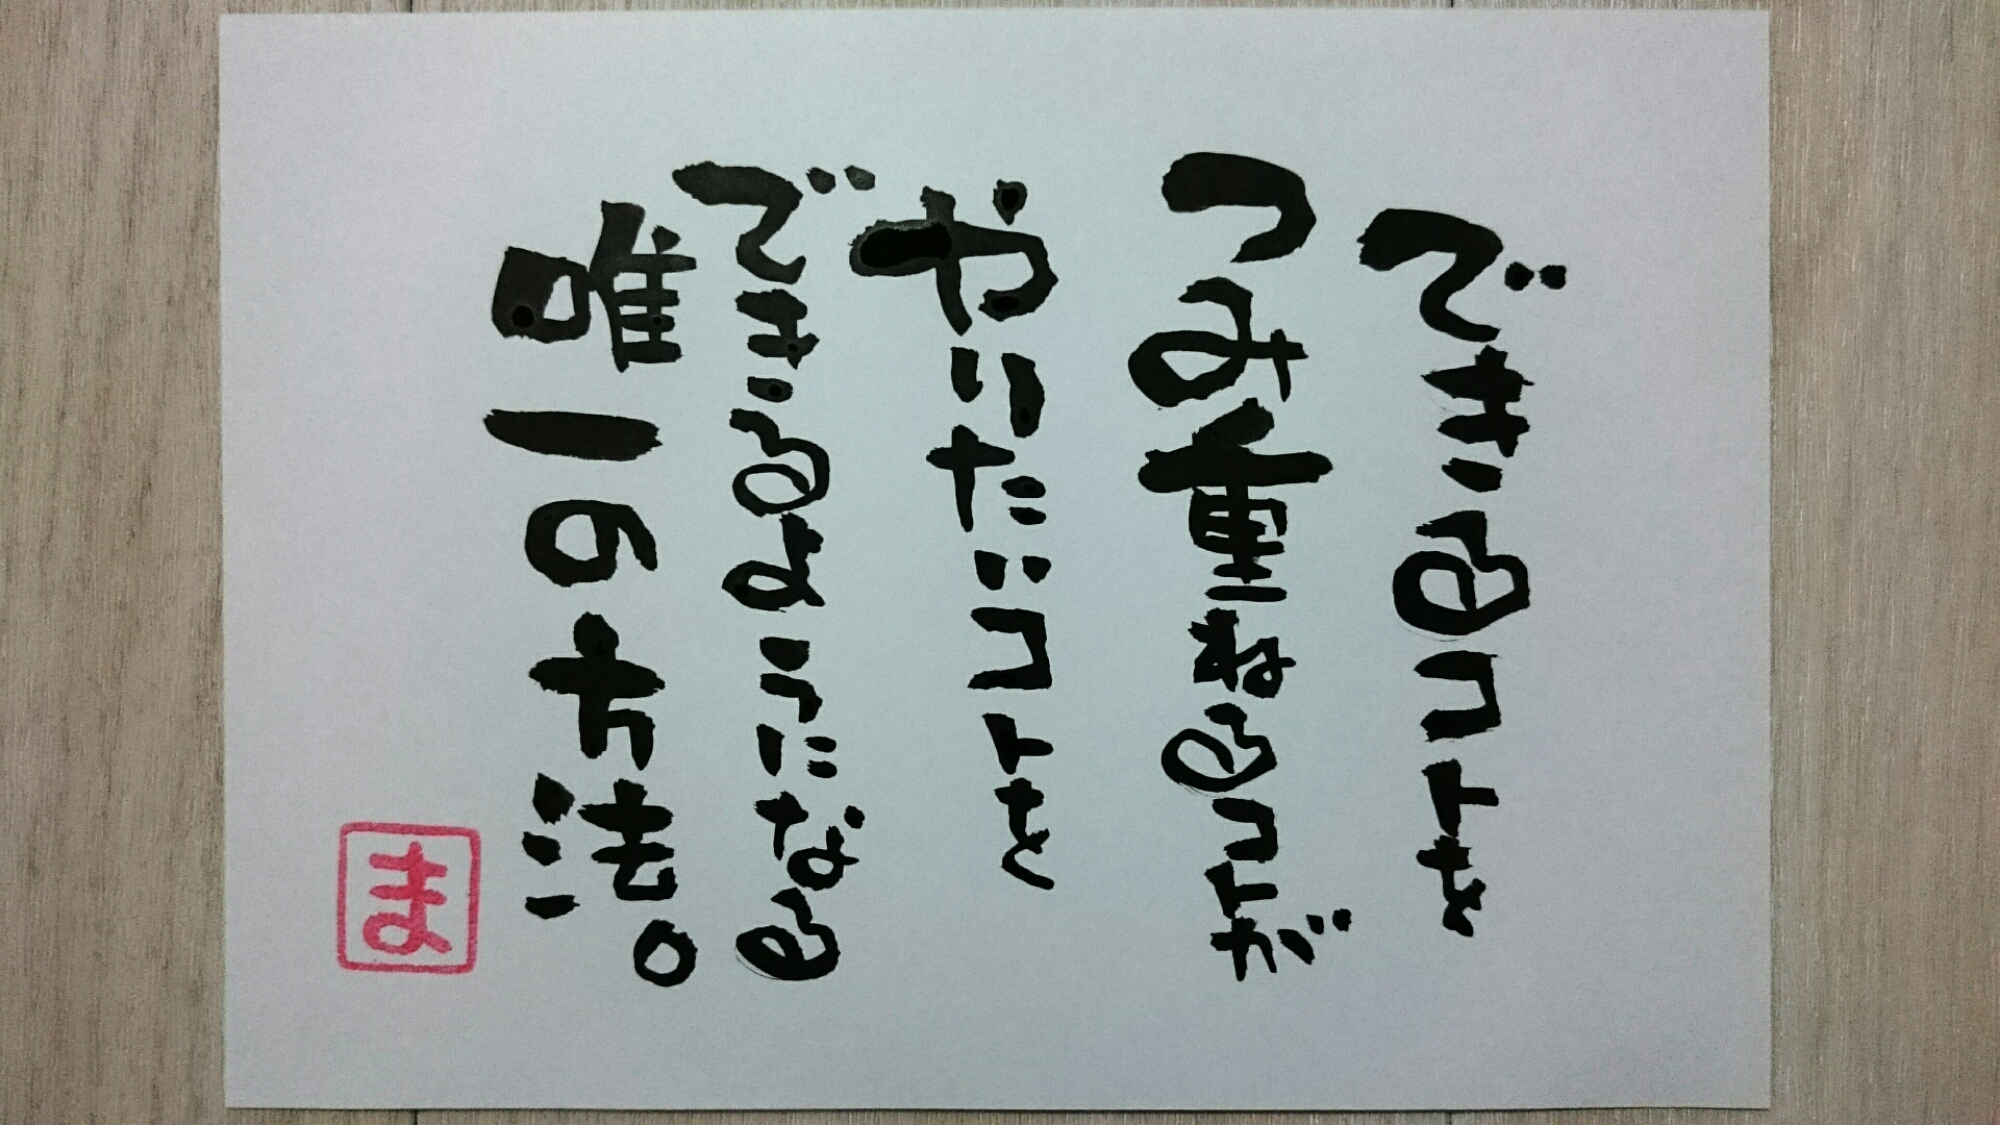 できるコトを
つみ重ねるコトが
やりたいコトを
できるようになる
唯一の方法。
ま